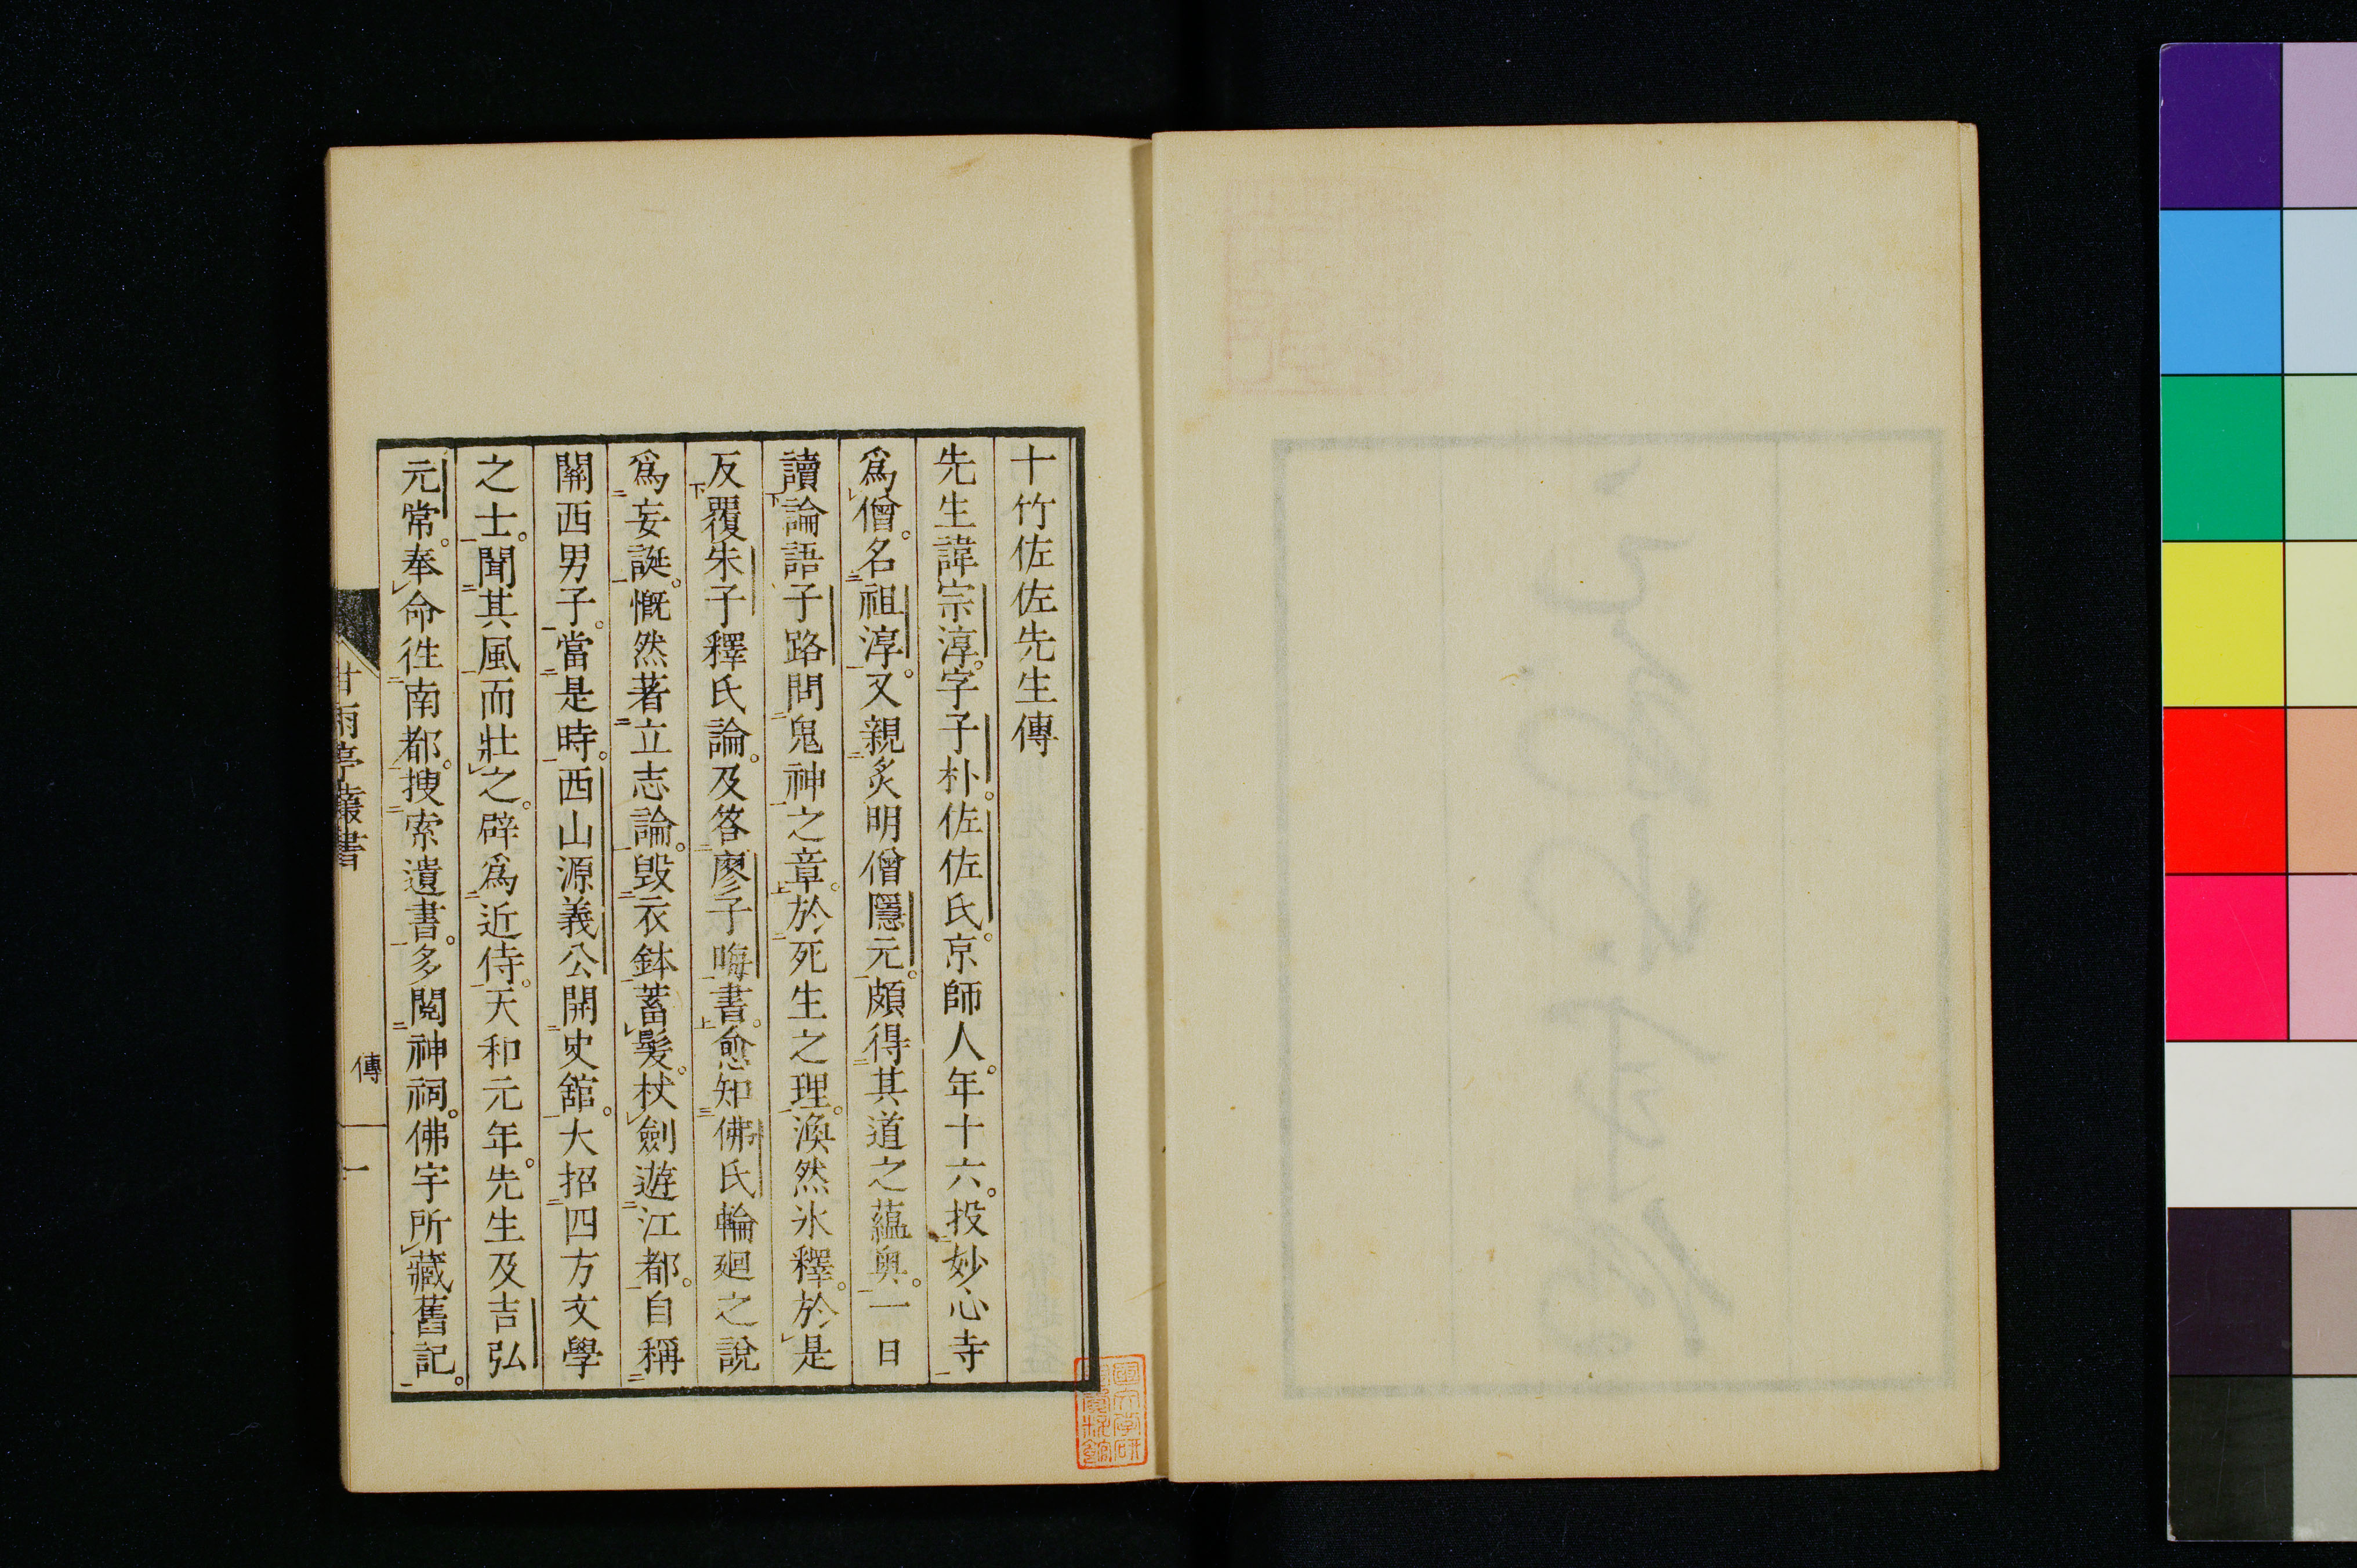 十竹佐佐先生傳
先生諱宗淳。字子朴。佐佐氏。京師人。年十六。投妙心寺
爲僧。名祖淳。又親炙明僧隱元。頗得其道之蘊奧。一日
讀論語子路問鬼神之章。於死生之理。渙然氷釋。於是
反覆朱子釋氏論。及答廖子晦書。愈知佛氏輪廻之說
爲妄誕。慨然著立志論。毀衣鉢蓄髮。杖劍遊江都。自稱
關西男子。當是時。西山源義公開史舘。大招四方文學
之士。聞其風而壯之。辟爲近侍。天和元年。先生及吉弘
元常。奉命徃南都。搜索遺書。多閱神祠。佛宇所藏舊記。
甘雨亭叢書
傳
一